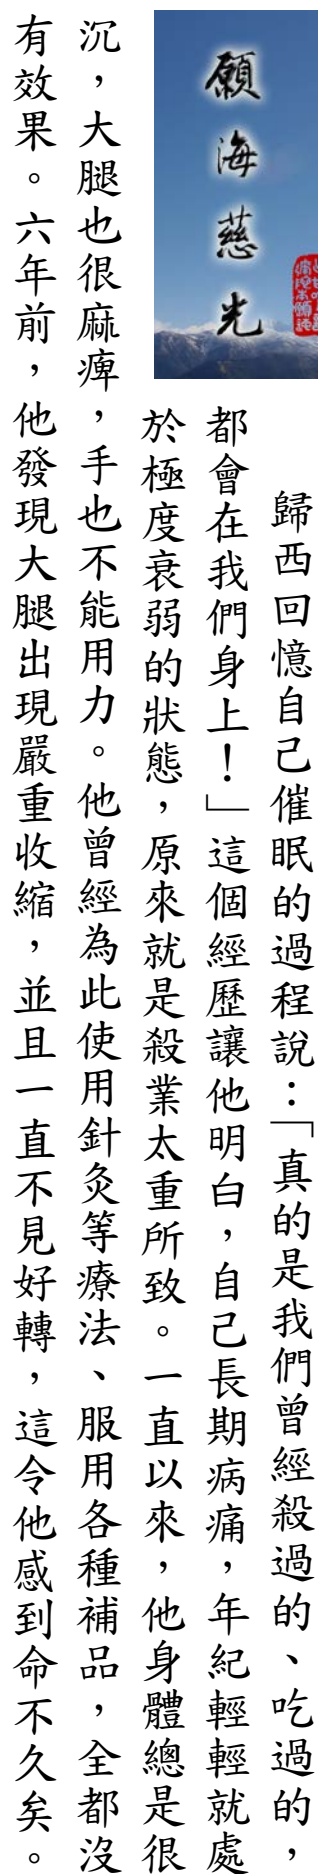 願海慈光
歸西回憶自己催眠的過程說：「真的是我們曾經殺過的、吃過的，
都會在我們身上！」這個經歷讓他明白，自己長期病痛，年紀輕輕就處
於極度衰弱的狀態，原來就是殺業太重所致。一直以來，他身體總是很
沉，大腿也很麻痺，手也不能用力。他曾經為此使用針灸等療法、服用各種補品，全都沒
有效果。六年前，他發現大腿出現嚴重收縮，並且一直不見好轉，這令他感到命不久矣。